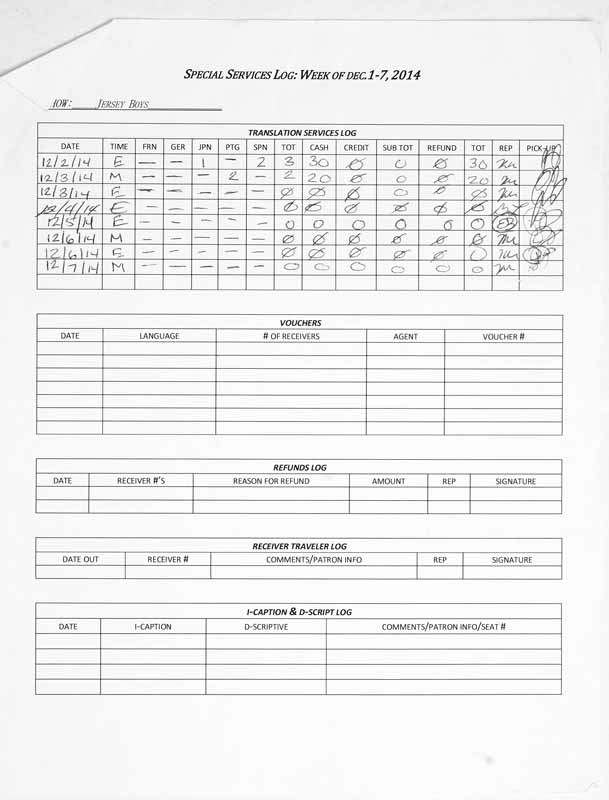 SPECIAL SERVICES LOG: WEEK OF DEC.1-7, 2014
HOW: JERSEY BOYS
TRANSLATION SERVICES LOG
DATE TIME FRN GER JPN PTG SPN TOT CASH CREDIT SUB TOT REFUND TOT REP PICK-UP
12/2/14 E — — 1 — 2 3 30 Ø 0 Ø 30
12/3/14 M — — — 2 — 2 20 Ø 0 Ø 20
12/3/14 E — — — — — Ø Ø Ø 0 Ø Ø
12/4/14 E — — — — — Ø Ø Ø Ø Ø Ø
12/5/14 E — — — — — 0 0 0 0 0 0
12/6/14 M — — — — — Ø Ø Ø Ø Ø Ø
12/6/14 E — — — — — Ø Ø Ø Ø Ø 0
12/7/14 M — — — — — 0 0 0 0 0 0
VOUCHERS
DATE LANGUAGE # OF RECEIVERS AGENT VOUCHER #
REFUNDS LOG
DATE RECEIVER #'S REASON FOR REFUND AMOUNT REP SIGNATURE
RECEIVER TRAVELER LOG
DATE OUT RECEIVER # COMMENTS/PATRON INFO REP SIGNATURE
I-CAPTION & D-SCRIPT LOG
DATE I-CAPTION D-SCRIPTIVE COMMENTS/PATRON INFO/SEAT #